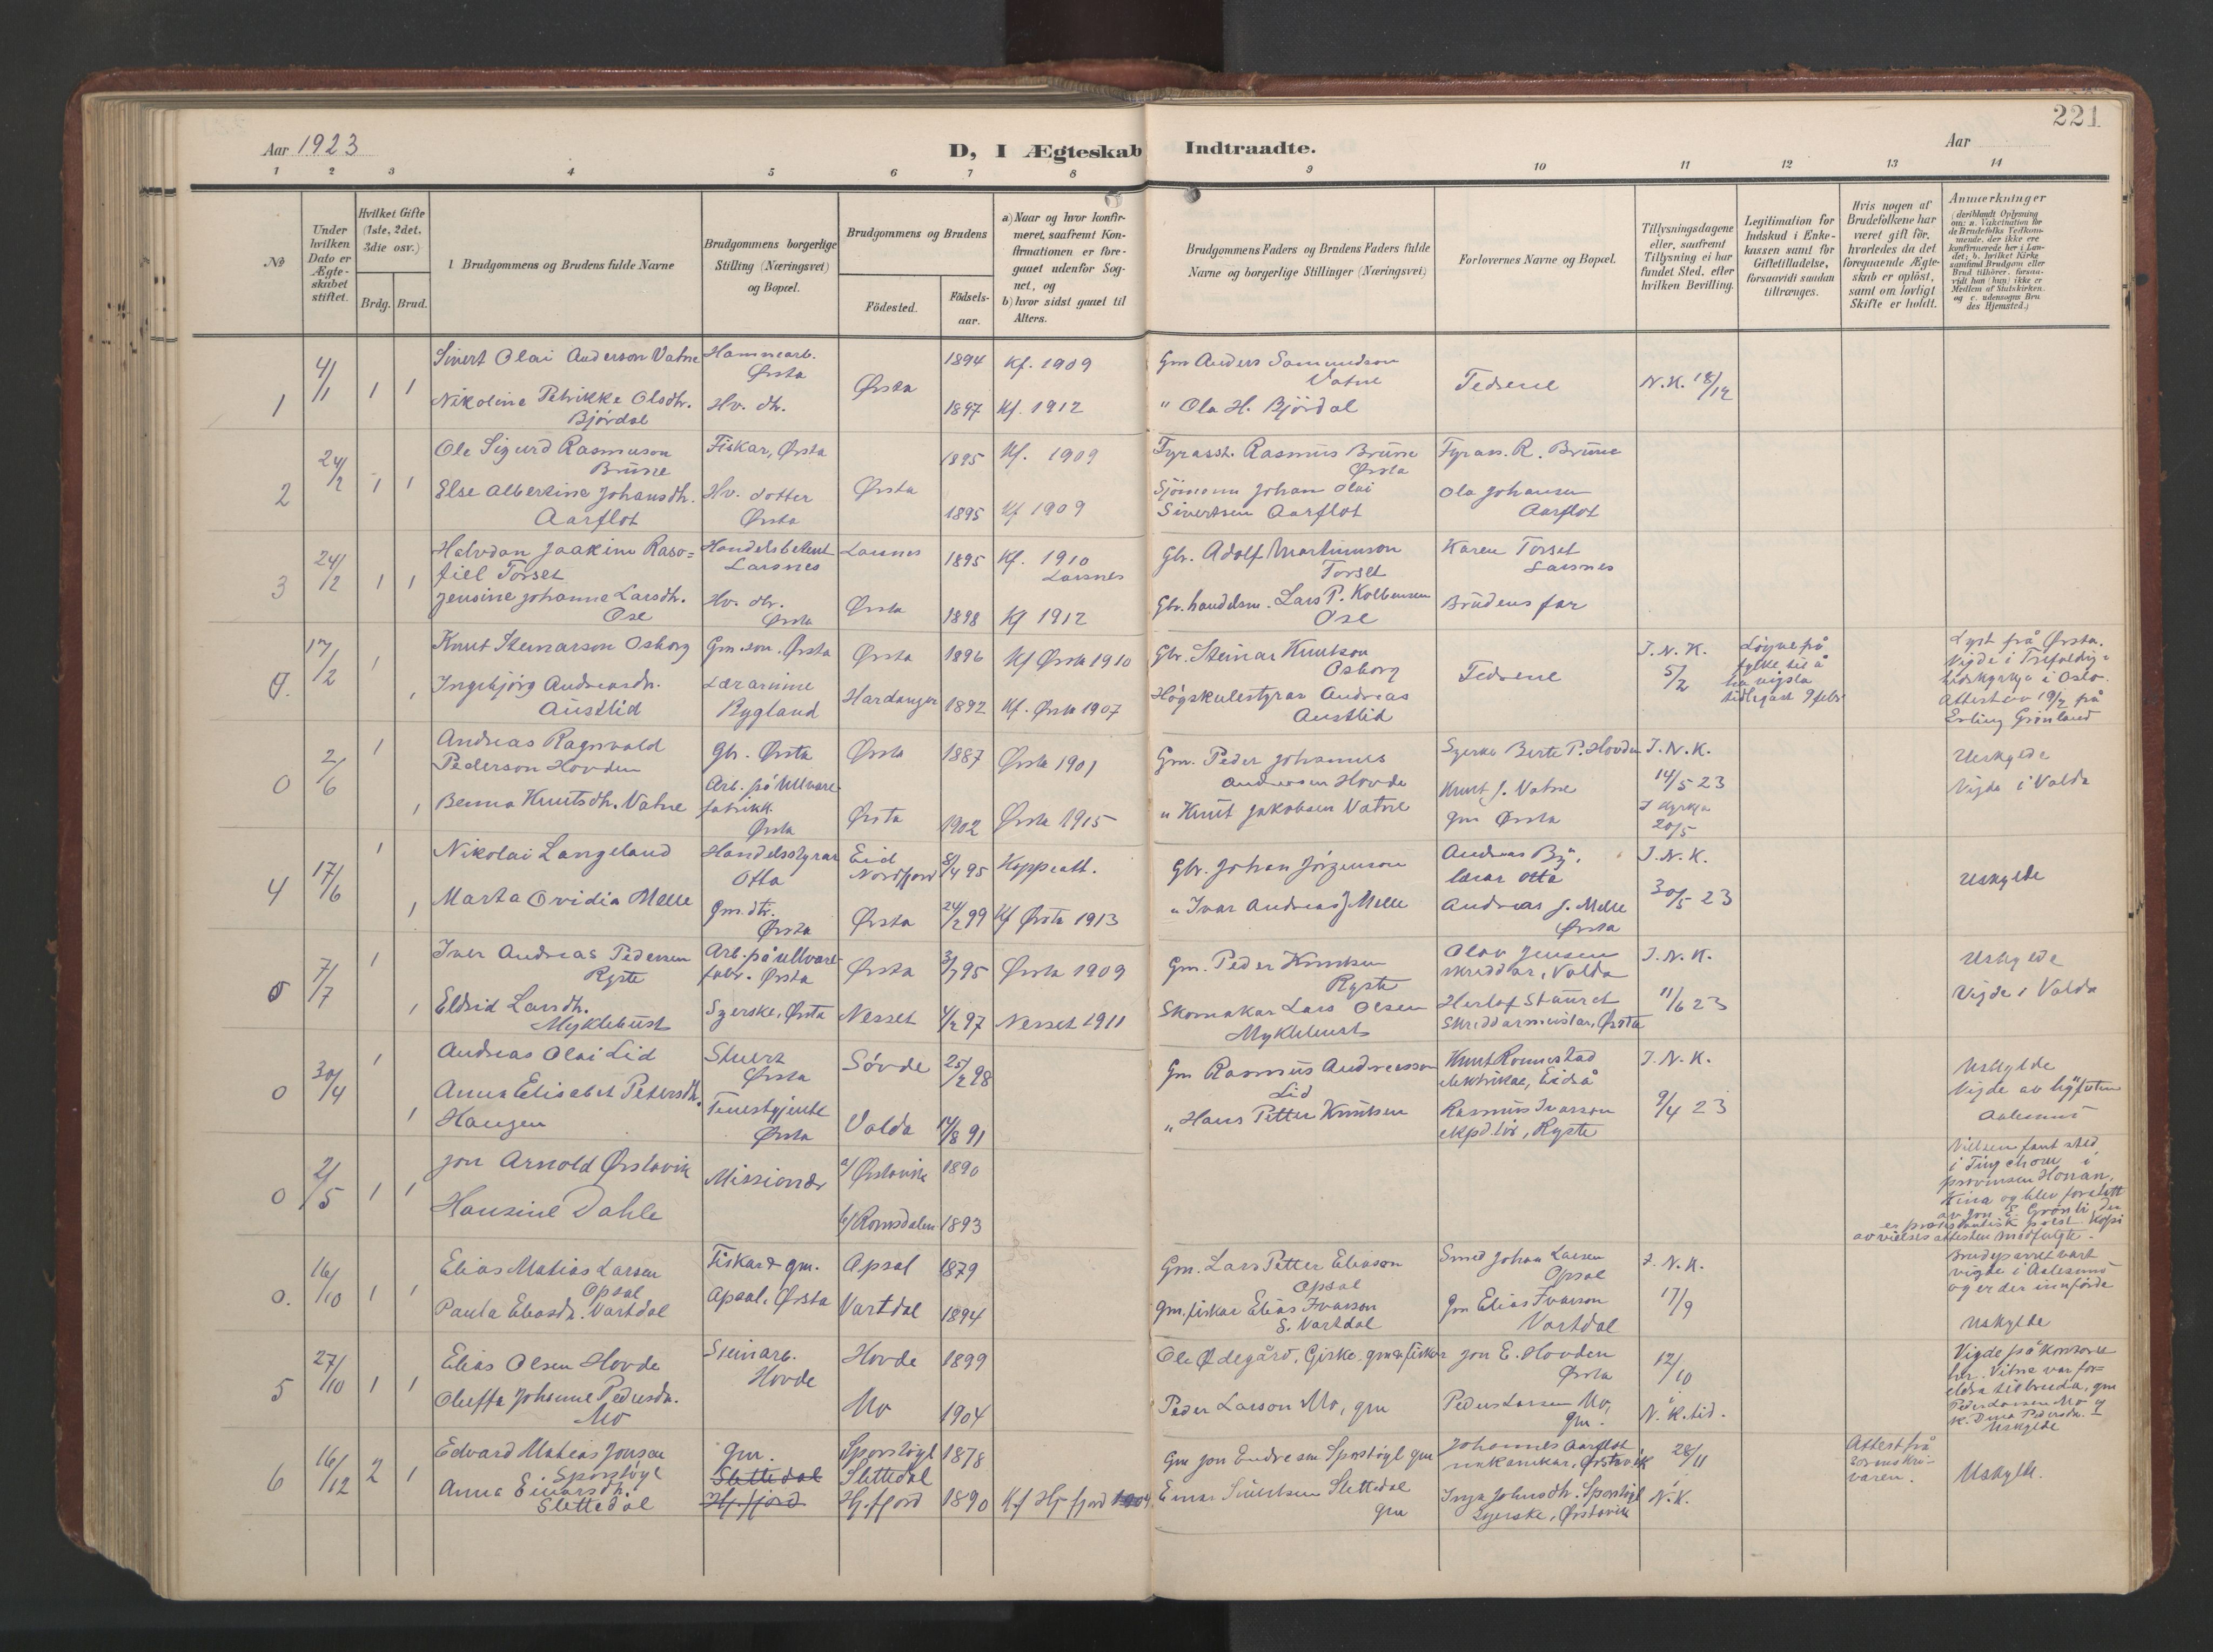 221
Aar 1923
D, I Ægteskab Indtraadte.
Aar
1 2 3 4 5 6 7 8 9 10 11 12 13 14
No
Under hvilken Dato er Ægteskabet stiftet.
Hvilket Gifte (1ste, 2det, 3die osv.)
Brdg. Brud.
Brudgommens og Brudens fulde Navne
Brudgommens borgerlige Stilling (Næringsvei) og Bopæl.
Brudgommens og Brudens
Födested.
Födsels-aar.
a) Naar og hvor konfirmeret, saafremt Konfirmationen er foregaaet udenfor Sognet, og
b) hvor sidst gaaet til Alters.
Brudgommens Faders og Brudens Faders fulde Navne og borgerlige Stillinger (Næringsvei)
Forlovernes Navne og Bopæl.
Tillysningsdagene eller, saafremt Tillysning ei har fundet Sted, efter hvilken Bevilling.
Legitimation for Indskud i Enkekassen samt for Giftetilladelse, forsaavidt saadan tiltrænges.
Hvis nogen af Brudefolkene har været gift för, hvorledes da det foregaaende Ægteskab er oplöst, samt om lovligt Skifte er holdt.
Anmærkninger
1 4/1 1 1
Sivert Olai Anderson Vatne
Hamnearb. Ørsta
Ørsta
1894 Kf. 1909
Gm Anders Samundson Vatne
Fedrene
N.K. 18/12
Nikoline Petrikke Olsdtr. Bjørdal
Hv. dtr.
1897 Kf. 1912
" Ola H. Bjørdal
2 24/2 1 1
Ole Sigurd Rasmuson Brune
Fiskar, Ørsta
Ørsta
1895 Kf. 1909
Fyrasst. Rasmus Brune Ørsta
Fyrass. R. Brune
Else Albertine Johansdtr. Aarflot
Hv. dotter Ørsta
1895 Kf 1909
Sjömann Johan Olai Sivertsen Aarflot
Ola Johansen Aarflot
3 24/2 1 1
Halvdan Joakim
Torset
Larsnes
Larsnes
1895 Kf. 1910 Larsnes
Gbr. Adolf Martinuson Torset
Karen Torset Larsnes
Jensine Johanne Larsdtr. Ose
Hv. dtr. Ørsta
Ørsta
1898 Kf 1912
Gbr. handelsm. Lars P. Kolbensen Ose
Brudens far
17/2 1
Knut Steinarson Osborg
Gm.son. Ørsta
Ørsta
1896 Kf Ørsta 1910
Gbr. Steinar Knutson Osborg
Fedrene
I.N.K. 5/2
Løyve på fylke til å ha vigsla tidlegare 9 febr
Lyst frå Ørsta.
Vigde i Trefaldig-
heidskyrkja i Oslo.
Attest av 19/2 frå
Erling Grönland
1
Ingebjørg Andreasdtr. Austlid
Lærarinne Rygland
Hardanger
1892 Kf. Ørsta 1907
Högskulestyrar Andreas Austlid
0 2/6 1
Andreas Ragnvald Pederson Hovden
Gbr. Ørsta
Ørsta
1887 Ørsta 1901
Gm. Peder Johannes Andersen Hovde
Syerske Berte P. Hovden
I.N.K. 14/5 23
Uskylde
Vigde i Volda
1
Benna Knutsdtr. Vatne
Arb. på Ullvare-fabrikk. Ørsta
Ørsta
1902 Ørsta 1915
" Knut Jakobsen Vatne
Knut J. Vatne gm Ørsta
I kyrkja 20/5
4 17/6 1
Nikolai Langeland
Handelsstyrar Otta
Eid Nordfjord
8/4 95 Koppeatt.
Gbr. Johan Jørgenson
Andreas By, lærar Otta
I.N.K. 30/5 23
Uskylde
1
Marta Ovidia Melle
Gm.dtr. Ørsta
Ørsta
24/2 99 Kf Ørsta 1913
" Ivar Andreas J Melle
Andreas J. Melle Ørsta
5 7/7 1
Iver Andreas Pedersen Ryste
Arb. på ullvare-fabr. Ørsta
Ørsta
3/7 95 Ørsta 1909
Gm. Peder Knutsen Ryste
Olav Jensen skreddar, Volda
I.N.K. 11/6 23
Uskylde
Vigde i Volda
1
Eldrid Larsdtr. Myklebust
Syerske, Ørsta
Nesset
4/2 97 Nesset 1911
Skomakar Lars Olsen Myklebust
Herlof Stauret Skreddarmeistar, Ørsta
0 30/4 1
Andreas Olai Lid
Stuert Ørsta
Sövde
25/2 98
Gm Rasmus Andreasson Lid
Knut Romestad elektrikar, Eidså
I.N.K. 9/4 23
Uskylde
Vigde av byfuten
Aalesund
1
Anna Elisabet Petersdtr. Haugen
Tenestgjente Ørsta
Volda
14/8 91
" Hans Petter Knutsen
Rasmus Ivarson ekspeditör, Ryste
0 2/5 1 1
Jon Arnold Ørstavik
Missionær
a/ Ørstavik
1890
Vielsen fant sted
i
provinsen Honan,
Kina og blev foretatt
av Jon E. Grönli, der
er protestantisk prest. Kopi
av vielsesattesten medfulgte.
Hansine Dahle
b/ Romsdalen
1893
0. 16/10 1 1
Elias Matias Larsen Opsal
Fiskar & gm. Opsal, Ørsta
Opsal
1879
Gm. Lars Petter Eliason Opsal
Smed Johan Larsen Opsal
I.N.K. 17/9
Brudeparret vart
vigde i Aalesund
og er der innförde
Uskylde
Paula Eliasdtr. Vartdal
Vartdal
1894
Gm, fiskar Elias Ivarson S. Vartdal
Gm Elias Ivarson Vartdal
5 27/10 1 1
Elias Olsen Hovde
Steinarb. Hovde
Hovde
1899
Ole Ødegård, Giske. gm & fiskar
Jon E. Hovden Ørsta
12/10 i N.K.tid.
Vigde på kontoret
her. Vitne var for-
eldra til bruda, gm
Peder Larsen Mo og
k. Dina Pedersdtr.
Uskylde
Oluffa Johanne Pedersdtr. Mo
Mo
1904
Peder Larson Mo, gm
Peder Larsen Mo, gm.
6 16/12 2 1
Edvard Mateas Jonsen Sporstøyl
gm.
Sporstøyl
1878
Gm Jon Endresen Sporstøyl gm
Johannes Aarflot mekanikar, Ørstavik
28/11 i N.K.
Attest frå sorenskri-varen.
Uskylde.
Anna Einarsdtr. Slettedal
Slettedal
Hj.fjord
Slettedal Hj.fjord
1890 Kf Hj.fjord
Einar Sivertsen Slettedal gm
Inga Johnsdtr. Sporstøyl Syerske, Ørstavik